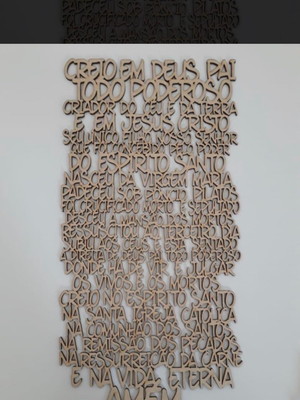 CREIO EM DEUS PAI
TODO PODEROSO
CRIADOR DO CÉU E DA TERRA
E EM JESUS CRISTO
SEU ÚNICO FILHO NOSSO SENHOR
QUE FOI CONCEBIDO PELO PODER
DO ESPIRITO SANTO
NASCEU DA VIRGEM MARIA
PADECEU SOB PÔNCIO PILATOS
FOI CRUCIFICADO MORTO E SEPULTADO
DESCEU A MANSÃO DOS MORTOS
RESSUSCITOU AO TERCEIRO DIA
SUBIU AOS CÉUS E ESTÁ SENTADO
A DIREITA DE DEUS PAI TODO PODEROSO
DONDE HÁ DE VIR E JULGAR
OS VIVOS E OS MORTOS
CREIO NO ESPIRITO SANTO
NA SANTA IGREJA CATOLICA
NA COMUNHÃO DOS SANTOS
NA REMISSÃO DOS PECADOS
NA RESSURREIÇÃO DA CARNE
E NA VIDA ETERNA
AMÉM